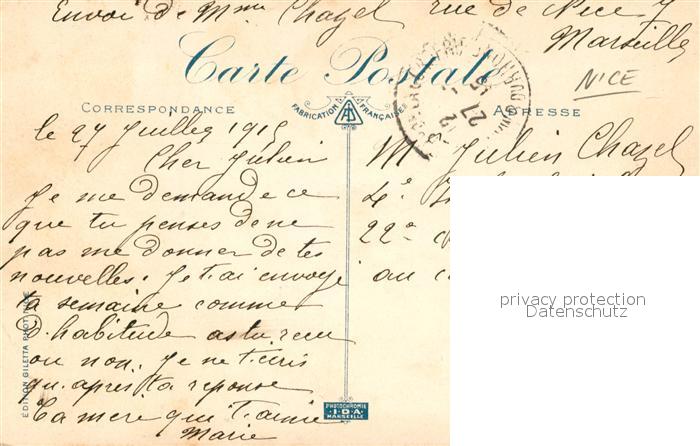 Envoi de Mme Chazel rue de Nice 7
Marseille
Carte Postale
NICE
CORRESPONDANCE
FABRICATION FRANÇAISE
ADRESSE
le 27 Juillet 1915
Cher Julien
Je me demande ce
que tu penses de ne
pas me donner de tes
nouvelles. Je t.ai envoyé
ta semaine comme
d.habitude as tu recu
ou non. Je ne t.écris
qu.après ta reponse
Ta mère qui t'aime
Marie
Mr Julien Chazel
4e
22e
au
privacy protection
Datenschutz
EDITION GILETTA PHOT. NICE
PHOTOCHROMIE
I·D·A
MARSEILLE